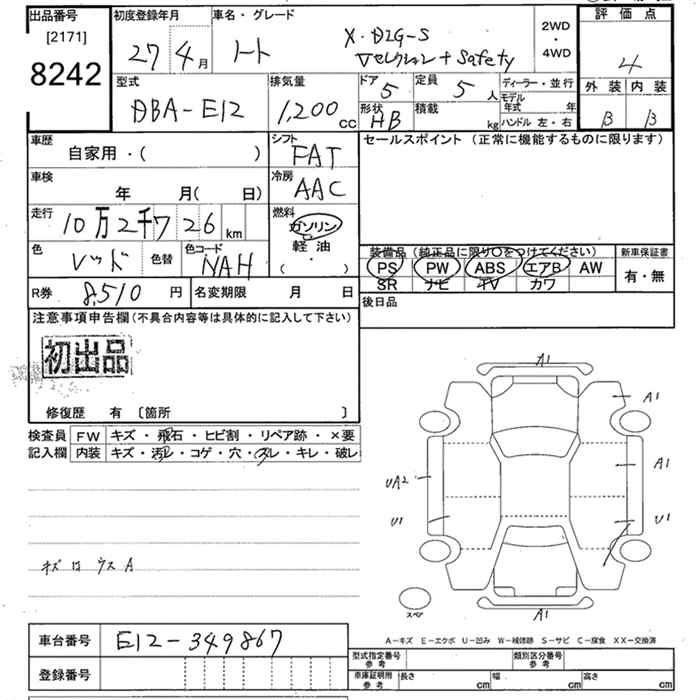 出品番号 [2171] 8242
初度登録年月 27年 4月
車名・グレード ノート X・DIG-S Vセレクション+Safety
2WD・4WD
評価点 4
外装 B 内装 B
型式 DBA-E12
排気量 1,200cc
ドア 5
定員 5人
形状 HB
積載 kg
ディーラー・並行
モデル年式 年
ハンドル 左・右
車歴 自家用・( )
シフト FAT
セールスポイント (正常に機能するものに限ります)
車検 年 月(日)
冷房 AAC
走行 10万2千726km
燃料 ガソリン・軽油 ( ・ )
色 レッド
色替
色コード NAH
装備品 (純正品に限り〇をつけてください)
PS PW ABS エアB AW
SR ナビ TV カワ
新車保証書 有・無
R券 8,510円
名変期限 月 日
後日品
注意事項申告欄 (不具合内容等は具体的に記入して下さい)
初出品
修復歴 有 〔箇所 〕
検査員 FW キズ・飛石・ヒビ割・リペア跡・×要
記入欄 内装 キズ・汚レ・コゲ・穴・スレ・キレ・破レ
A1
A1
A1
UA2
U1
U1
キズ ウス A
スペア
A1
A-キズ E-エクボ U-凹み W-補修跡 S-サビ C-腐食 XX-交換済
車台番号 E12-349867
登録番号
型式指定番号 参考
類別区分番号 参考
車庫証明用 参考 長さ cm 幅 cm 高さ cm